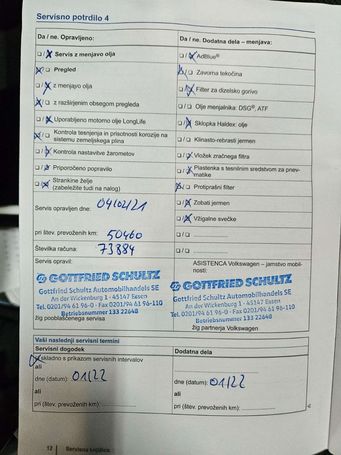 Servisno potrdilo 4
Da / ne. Opravljeno:
Da / ne. Dodatna dela – menjava:
Servis z menjavo olja
AdBlue®
Pregled
Zavorna tekočina
z menjavo olja
Filter za dizelsko gorivo
z razširjenim obsegom pregleda
Olje menjalnika: DSG®, ATF
Uporabljeno motorno olje LongLife
Sklopka Haldex: olje
Kontrola tesnjenja in prisotnosti korozije na
sistemu zemeljskega plina
Klinasto-rebrasti jermen
Kontrola nastavitve žarometov
Vložek zračnega filtra
Priporočeno popravilo
Plastenka s tesnilnim sredstvom za pnev-
matike
Strankine želje
(zabeležite tudi na nalog)
Protiprašni filter
Zobati jermen
Servis opravljen dne: 04/02/21
Vžigalne svečke
pri štev. prevoženih km: 50460
Številka računa: 73884
Servis opravil:
ASISTENCA Volkswagen – jamstvo mobil-
nosti:
GOTTFRIED SCHULTZ
Gottfried Schultz Automobilhandels SE
An der Wickenburg 1 - 45147 Essen
Tel. 0201/94 61 96-0 · Fax 0201/94 61 96-110
Betriebsnummer 133 22648
žig pooblaščenega servisa
GOTTFRIED SCHULTZ
Gottfried Schultz Automobilhandels SE
An der Wickenburg 1 - 45147 Essen
Tel. 0201/94 61 96-0 · Fax 0201/94 61 96-110
Betriebsnummer 133 22648
žig partnerja Volkswagen
Vaši naslednji servisni termini
Servisni dogodek
Dodatna dela
skladno s prikazom servisnih intervalov
ali
dne (datum): 01/22
dne (datum): 01/22
ali
ali
pri (štev. prevoženih km):
pri (štev. prevoženih km):
12
Servisna knjižica